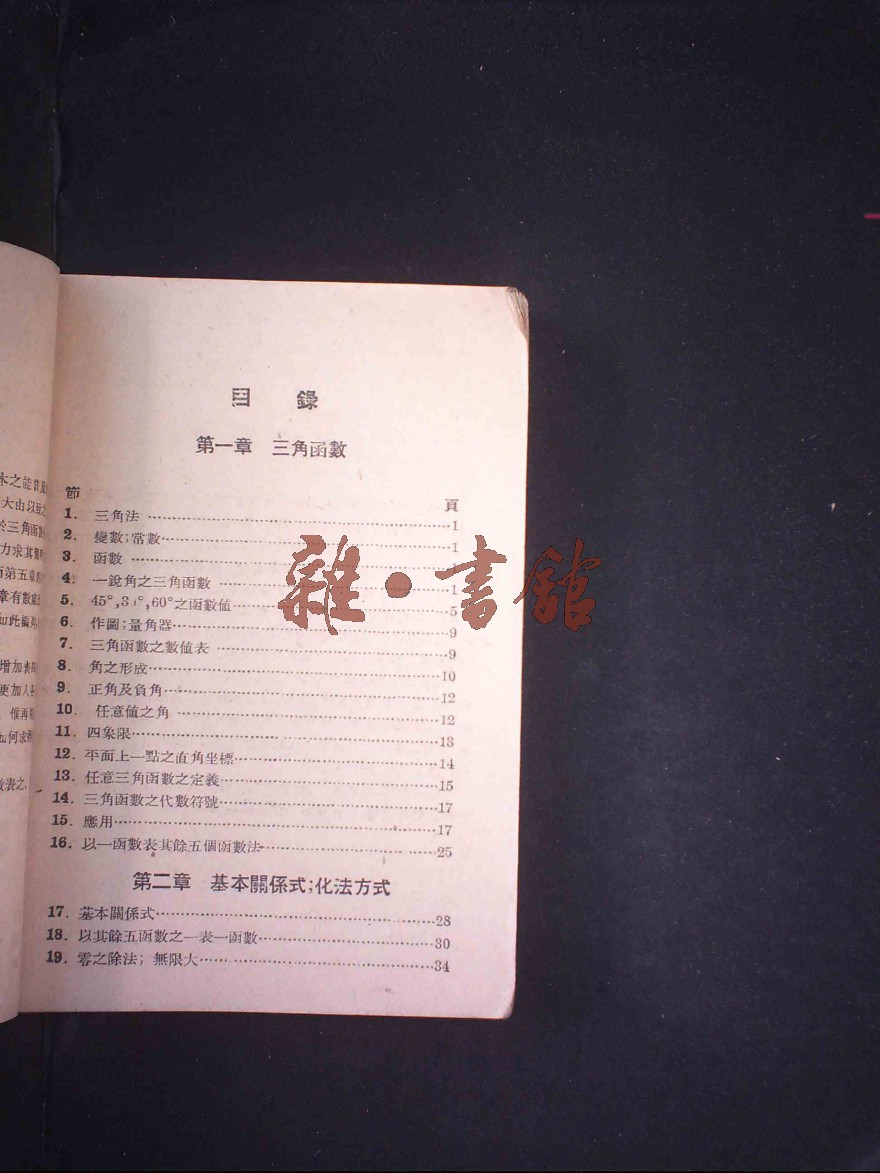 木之能普及
大由以致之
於三角函數
力求其
而第五章
章有數
如此編
增加表
更加入
惟再
如何求
數表之
目 錄
第一章 三角函數
節 頁
1. 三角法 1
2. 變數;常數 1
3. 函數
4. 一銳角之三角函數 1
5. 45°,3 °,60°之函數值 5
6. 作圖;量角器 9
7. 三角函數之數值表 9
8. 角之形成 10
9. 正角及負角 12
10. 任意值之角 12
11. 四象限 13
12. 平面上一點之直角坐標 14
13. 任意三角函數之定義 15
14. 三角函數之代數符號 17
15. 應用 17
16. 以一函數表其餘五個函數法 25
第二章 基本關係式;化法方式
17. 基本關係式 28
18. 以其餘五函數之一表一函數 30
19. 零之除法; 無限大 34
雜·書館